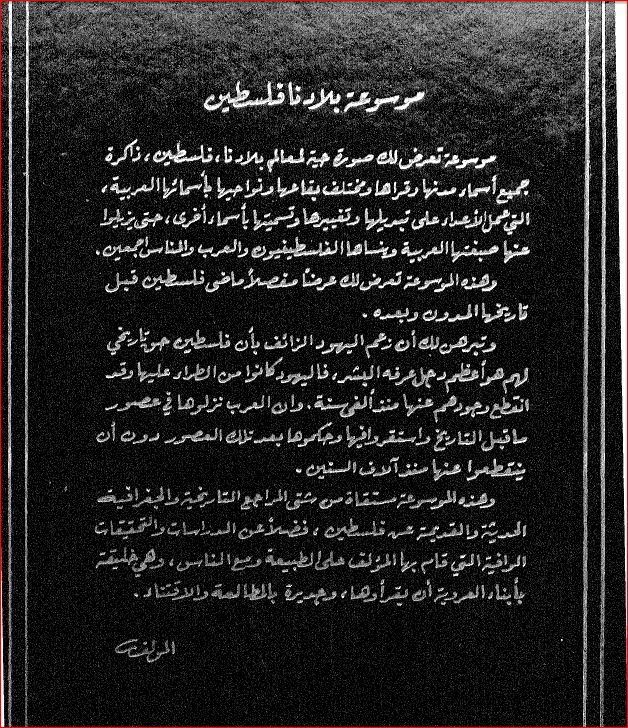 موسوعة بلادنا فلسطين
موسوعة تعرض لك صورة حية لمعالم بلادنا، فلسطين، ذاكرة
جميع أسماء مدنها وقراها ومختلف بقاعها ونواحيها بأسمائها العربية،
التي عمل الأعداء على تبديلها وتغييرها وتسميتها بأسماء أخرى، حتى يزيلوا
عنها صبغتها العربية وينساها الفلسطينيون والعرب والناس اجمعين.
وهذه الموسوعة تعرض لك عرضاً مفصلاً ماضي فلسطين قبل
تاريخها المدون وبعده.
وتبرهن لك أن زعم اليهود الزائف بأن فلسطين حق تاريخي
لهم هو أعظم دجل عرفه البشر، فاليهود كانوا من الطراء عليها وقد
انقطع وجودهم عنها منذ ألفي سنة. وان العرب نزلوها في عصور
ما قبل التاريخ واستقروا فيها وحكموها بعد تلك العصور دون أن
ينقطعوا عنها منذ آلاف السنين.
وهذه الموسوعة مستقاة من شتى المراجع التاريخية والجغرافية
الحديثة والقديمة عن فلسطين، فضلاً عن الدراسات والتحقيقات
الوافية التي قام بها المؤلف على الطبيعة ومع الناس، وهي خليقة
بأبناء العروبة أن يقرأوها، وجديرة بالمطالعة والاقتناء.
المؤلف